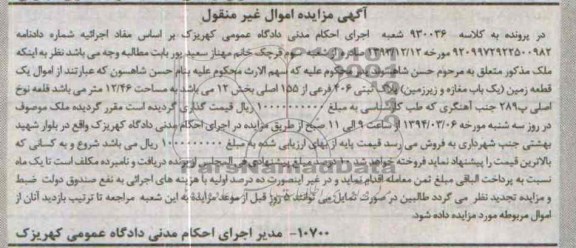 آگهی مزایده اموال غیر منقول
در پرونده به کلاسه ۹۳۰۰۳۶ شعبه اجرای احکام مدنی دادگاه عمومی کهریزک بر اساس مفاد اجرائیه شماره دادنامه
۹۲۰۹۹۷۲۹۲۲۵۰۰۹۸۲ مورخه ۱۳۹۳/۱۲/۱۲ صادره از شعبه سوم قرچک خانم مهناز سعید پور بابت مطالبه وجه می باشد نظر به اینکه
ملک مذکور متعلق به مرحوم حسن شاهسون پدر محکوم علیه که سهم الارث محکوم علیه بنام حسن شاهسون که عبارتند از اموال یک
قطعه زمین (یک باب مغازه و زیرزمین) پلاک ثبتی ۴۰۶ فرعی از ۱۵۵ اصلی بخش ۱۲ می باشد به مساحت ۱۲/۴۶ متر می باشد قلعه نوع
اصلی پ۲۸۹ جنب آهنگری که طی کارشناسی به مبلغ ۱۰۰۰۰۰۰۰۰۰ ریال قیمت گذاری گردیده است مقرر گردیده ملک موصوف
در روز سه شنبه مورخه ۱۳۹۴/۰۳/۰۶ از ساعت ۹ الی ۱۱ صبح از طریق مزایده در اجرای احکام مدنی دادگاه کهریزک واقع در بلوار شهید
بهشتی جنب شهرداری به فروش می رسد قیمت پایه از بهای ارزیابی شده به مبلغ ۱۰۰۰۰۰۰۰۰۰ ریال می باشد شروع و به کسانی که
بالاترین قیمت را پیشنهاد نماید فروخته خواهد شد ۱۰ درصد مبلغ پیشنهادی فی المجلس از برنده دریافت و نامبرده مکلف است تا یک ماه
نسبت به پرداخت الباقی مبلغ ثمن معامله اقدام نماید و در غیر اینصورت ده درصد اولیه با هزینه های اجرائی به نفع صندوق دولت ضبط
و مزایده تجدید نظر می گردد طالبین در صورت تمایل می توانند ۵ روز قبل از موعد مزایده به این شعبه مراجعه تا ترتیب بازدید آنان از
اموال مربوطه مورد مزایده داده شود.
۱۰۷۰۰- مدیر اجرای احکام مدنی دادگاه عمومی کهریزک